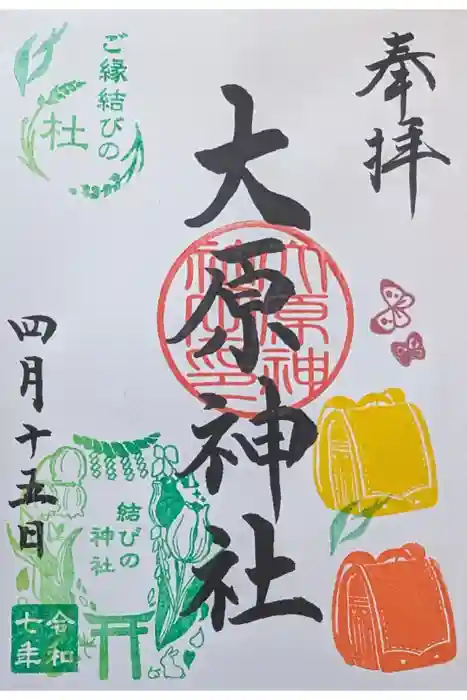 奉拝
大原神社
大原神
社之印
ご縁結びの
杜
四月十五日
結びの
神社
令和
七年